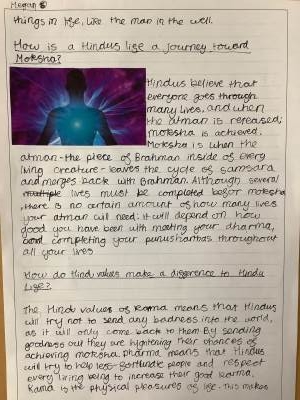 Megan S
things in life, like the man in the well.
How is a Hindus life a journey toward
Moksha?
Hindus believe that
everyone goes through
many lives, and when
the atman is released;
moksha is achieved.
Moksha is when the
atman - the piece of Brahman inside of every
living creature - leaves the cycle of samsara
and merges back with Brahman. Although several
lives must be completed befor moksha
, there is no certain amount of how many lives
your atman will need: it will depend on how
good you have been with meeting your dharma,
completing your purusharthas throughout
all your lives
How do Hindu values make a difference to Hindu
Life?
The Hindu values of Karma means that Hindus
will try not to send any badness into the world,
as it will only come back to them By sending
goodness out they are hightening their chances of
achieving moksha. Dharma means that Hindus
will try to help less-fortunate people and respect
every living being to increase their good karma.
Kama is the physical pleasures of life. This makes